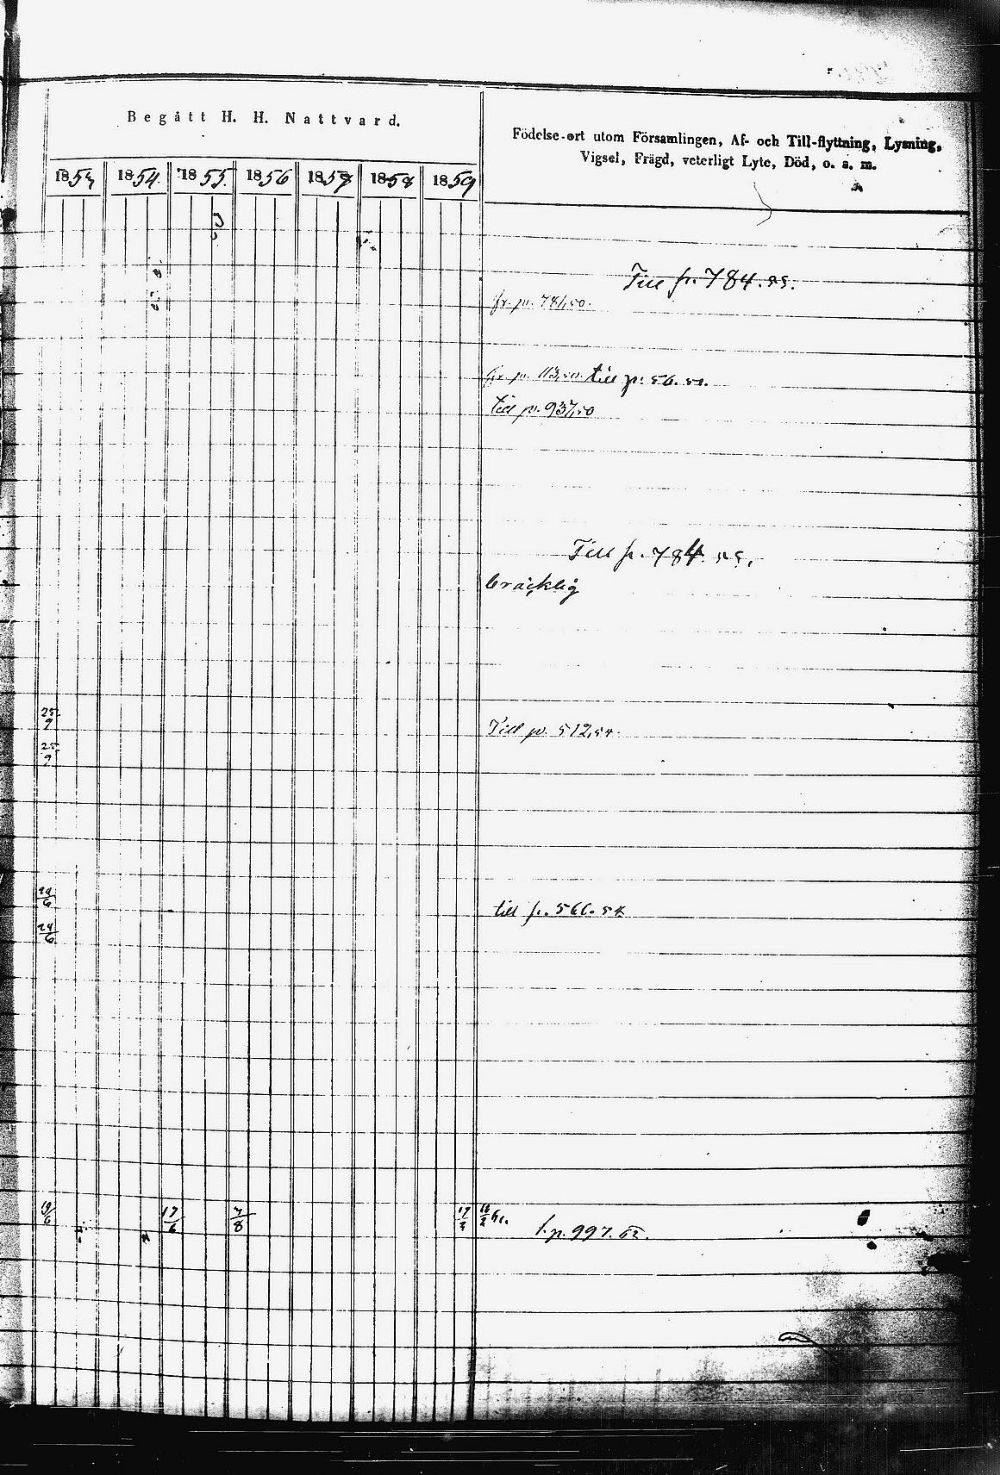 Begått H. H. Nattvard.
Födelse-ort utom Församlingen, Af- och Till-flyttning, Lysning,
Vigsel, Frägd, veterligt Lyte, Död, o. s. m.
1853 1854. 1855. 1856 1857 1858 1859
Till p. 784.55.
fr. p. 781,50.
fr. p. 113,50. till p. 56.50.
till p. 937,50
Till p. 784. 55.
bräcklig
25/9
Till p. 512,54.
25/9
24/6
till p. 566.54
24/6
19/6 17/6 7/8 17/3
f. p. 997. 52.